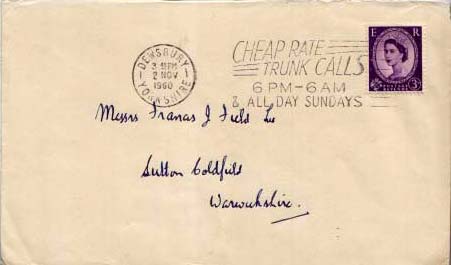 DEWSBURY
YORKSHIRE
3-15PM
2 NOV
1960
CHEAP RATE
TRUNK CALLS
6 PM-6 AM
& ALL DAY SUNDAYS
E R
3D
Messrs Francis J Field
Sutton Coldfield
Warwickshire.